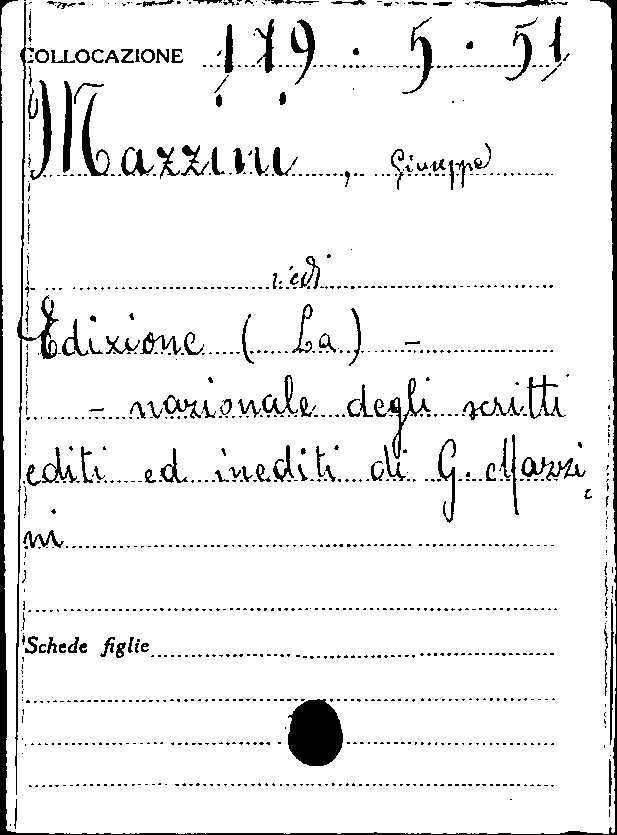 COLLOCAZIONE 179 . 5 . 51
Mazzini, Giuseppe
vedi
Edizione ( La ) -
- nazionale degli scritti
editi ed inediti di G. Mazzi-
ni
Schede figlie